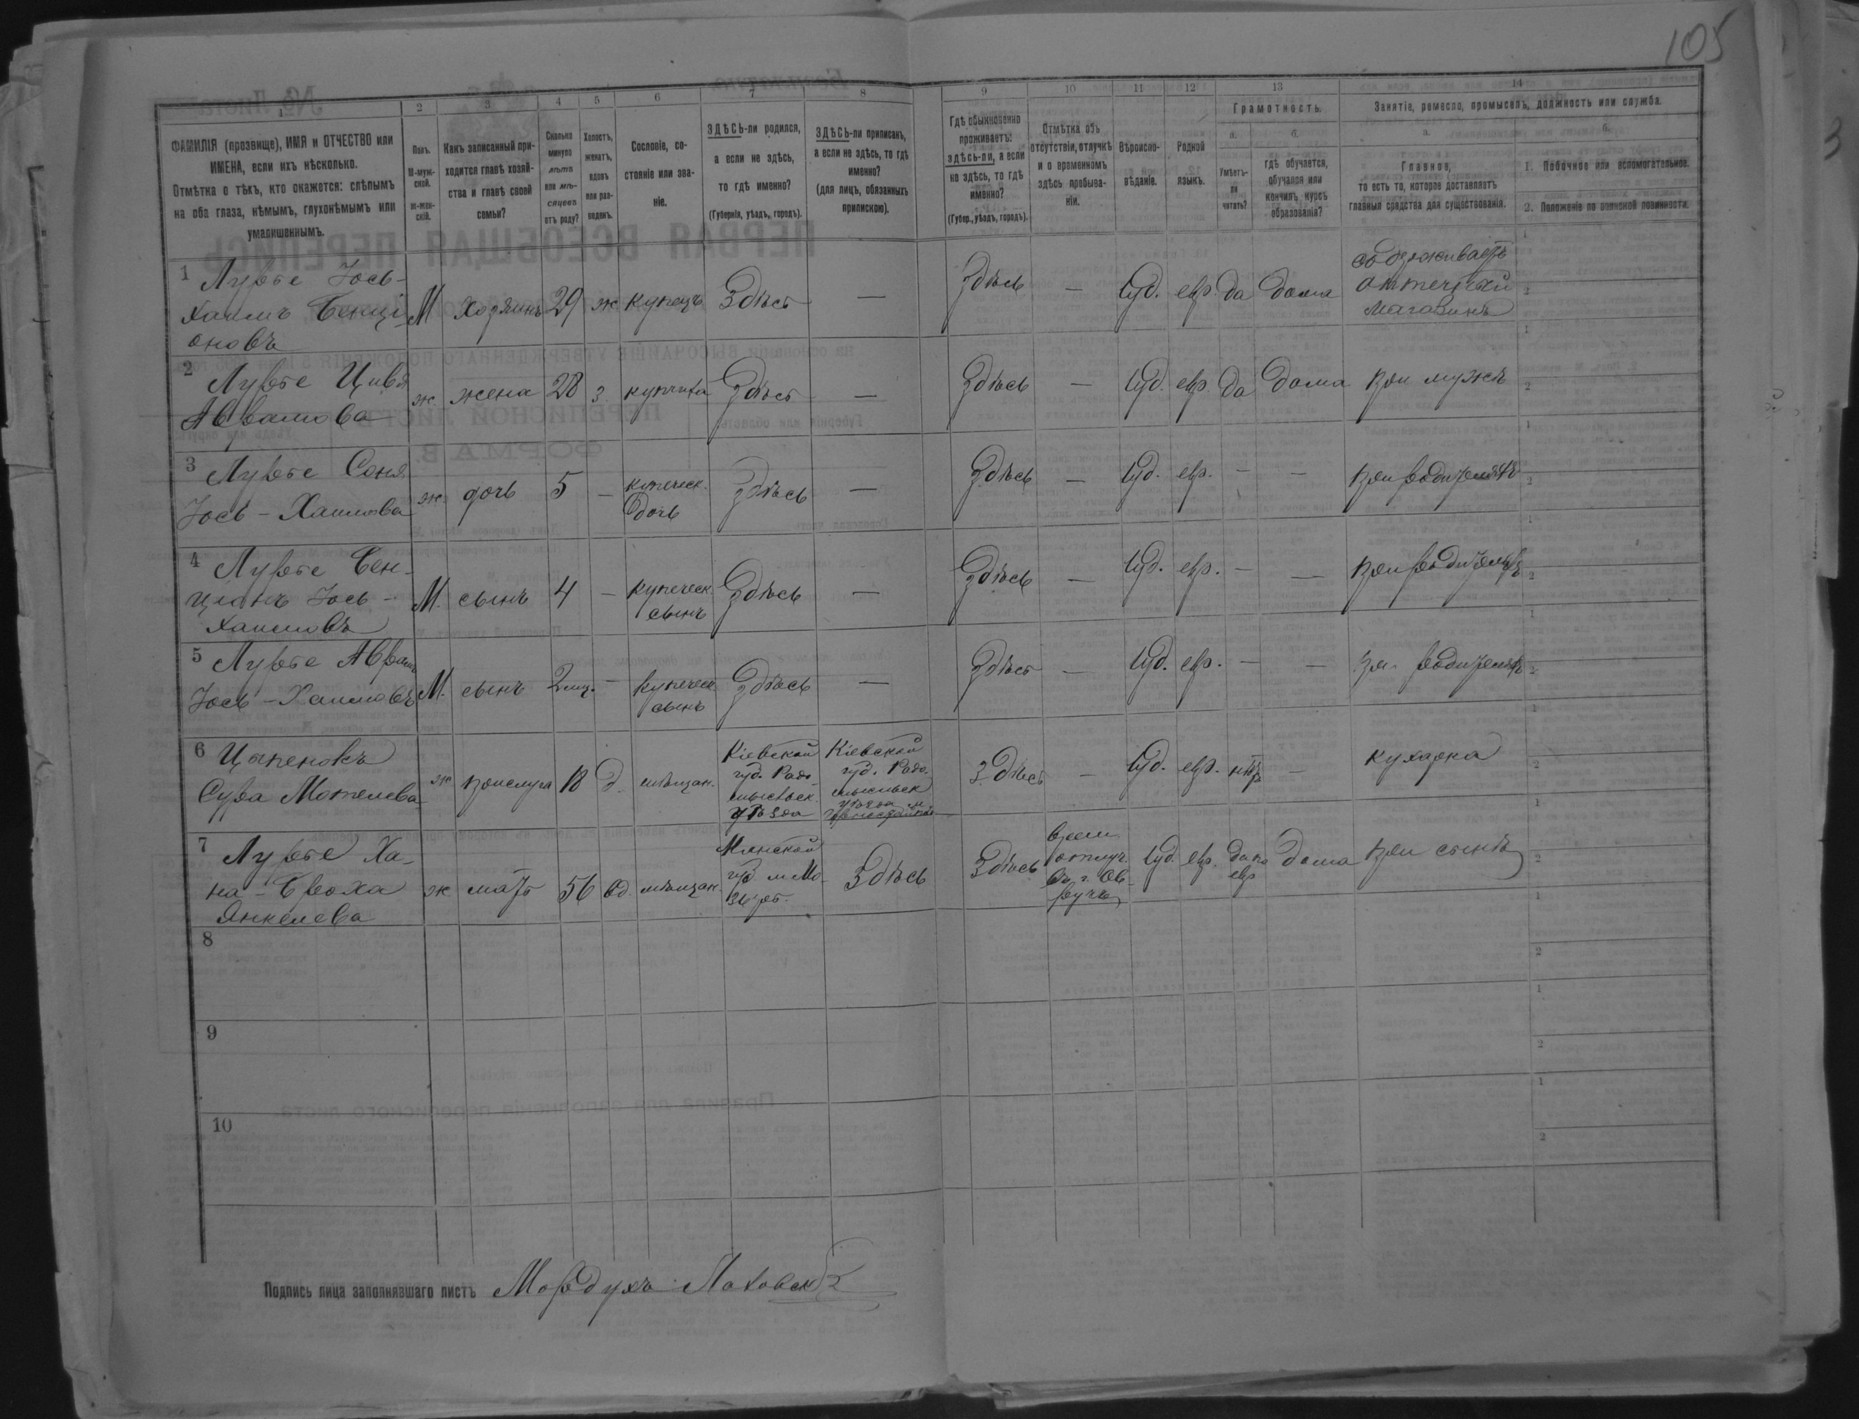 105
1 2 3 4 5 6 7 8 9 10 11 12 13 14
ФАМИЛІЯ (прозвище), ИМЯ и ОТЧЕСТВО или
ИМЕНА, если ихъ нѣсколько.
Отмѣтка о тѣхъ, кто окажется: слѣпымъ
на оба глаза, нѣмымъ, глухонѣмымъ или
умалишеннымъ.
Полъ.
М-муж-
ской.
ж-жен-
скій.
Какъ записанный при-
ходится главѣ хозяй-
ства и главѣ своей
семьи?
Сколько
минуло
лѣтъ
или мѣ-
сяцевъ
отъ роду?
Холостъ,
женатъ,
вдовъ
или раз-
веденъ.
Сословіе, со-
стояніе или зва-
ніе.
ЗДѢСЬ-ли родился,
а если не здѣсь,
то гдѣ именно?
(Губернія, уѣздъ, городъ).
ЗДѢСЬ-ли приписанъ,
а если не здѣсь, то гдѣ
именно?
(для лицъ, обязанныхъ
припискою).
Гдѣ обыкновенно
проживаетъ:
здѣсь-ли, а если
не здѣсь, то гдѣ
именно?
(Губер., уѣздъ, городъ).
Отмѣтка объ
отсутствіи, отлучкѣ
и о временномъ
здѣсь пребыва-
ніи.
Вѣроиспо-
вѣданіе.
Родной
языкъ.
Грамотность.
а.
Умѣетъ-
ли
читать?
б.
гдѣ обучается,
обучался или
кончилъ курсъ
образованія?
Занятіе, ремесло, промыселъ, должность или служба.
а.
Главное,
то есть то, которое доставляетъ
главныя средства для существованія.
б.
1. Побочное или вспомогательное.
2. Положеніе по воинской повинности.
1 Лурье Іось-
Хаимъ Бенці-
оновъ
М Хозяинъ 29 ж купецъ Здѣсь — Здѣсь — Іуд. евр. да дома
аптечный
магазинъ
2 Лурье Цивя
ж жена 28 з купчиха Здѣсь — Здѣсь — Іуд. евр. да дома при мужѣ
3 Лурье Соня
Іось-Хаимова
ж дочь 5 — купеческ.
дочь
Здѣсь — Здѣсь — Іуд. евр. — — при родителяхъ
4 Лурье Бен-
ціонъ Іось-
Хаимовъ
М. сынъ 4 — купеческ.
сынъ
Здѣсь — Здѣсь — Іуд. евр. — — при родителяхъ
5 Лурье Аврам
Іось-Хаимовъ
М. сынъ 2 мц. — купеческ.
сынъ
Здѣсь — Здѣсь — Іуд. евр. — — родителяхъ
6 Цыпенокъ
Сура Мотелева
ж прислуга 18 д. мѣщан.
Кіевской
губ. Радо
мысльск.
уѣзда
Кіевской
губ. Радо
мысльск
уѣзда м
Здѣсь — Іуд. евр. нѣтъ — кухарка
7 Лурье Ха-
на-Броха
Янкелева
ж мать 56 вд. мѣщан.
Минской
губ м Мо-
зырь
Здѣсь Здѣсь
врем
отлуч
въ г. Ов-
ручъ
Іуд. евр. да по
евр
дома при сынѣ
8
9
10
Подпись лица заполнявшаго листъ Мордухъ